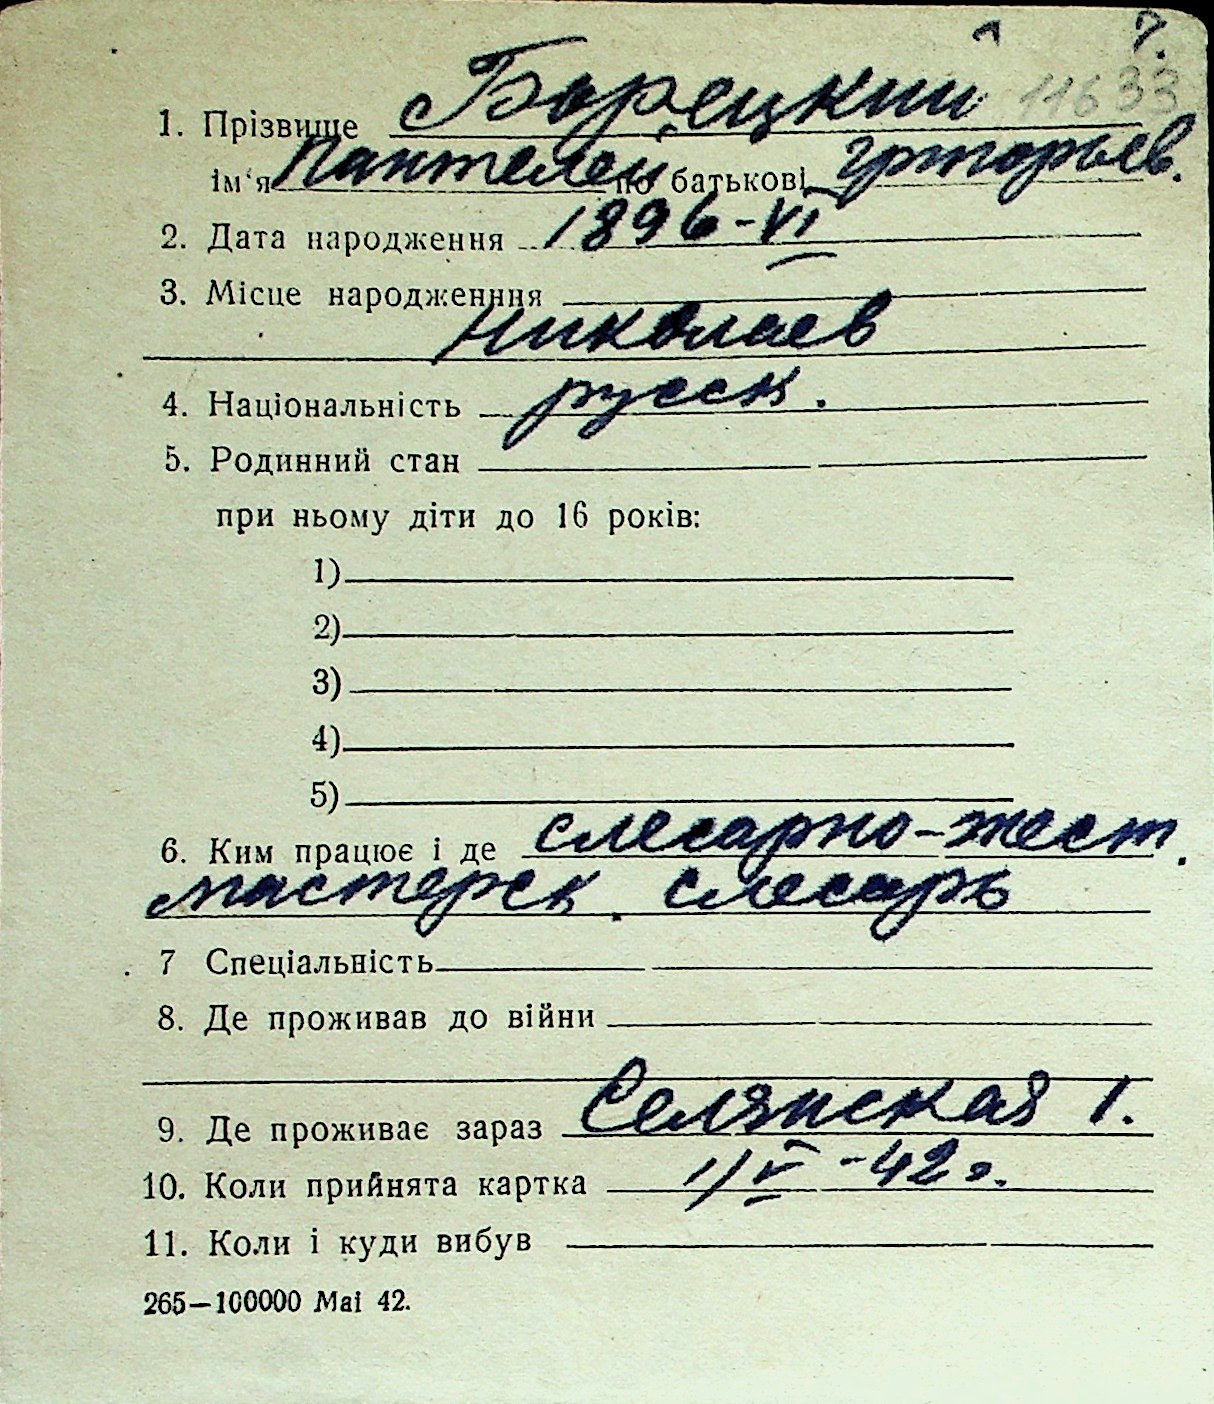 7.
11633
1. Прізвище Борецкий
ім‘я Пантелей по батькові Григорьев.
2. Дата народження 1896-VI
3. Місце народженння
Николаев
4. Національність русск.
5. Родинний стан
при ньому діти до 16 років:
1)
2)
3)
4)
5)
6. Ким працює і де слесарно-жест.
мастерск. слесарь
7 Спеціальність
8. Де проживав до війни
9. Де проживає зараз Селянская 1.
10. Коли прийнята картка 1/V-42г.
11. Коли і куди вибув
265—100000 Маі 42.